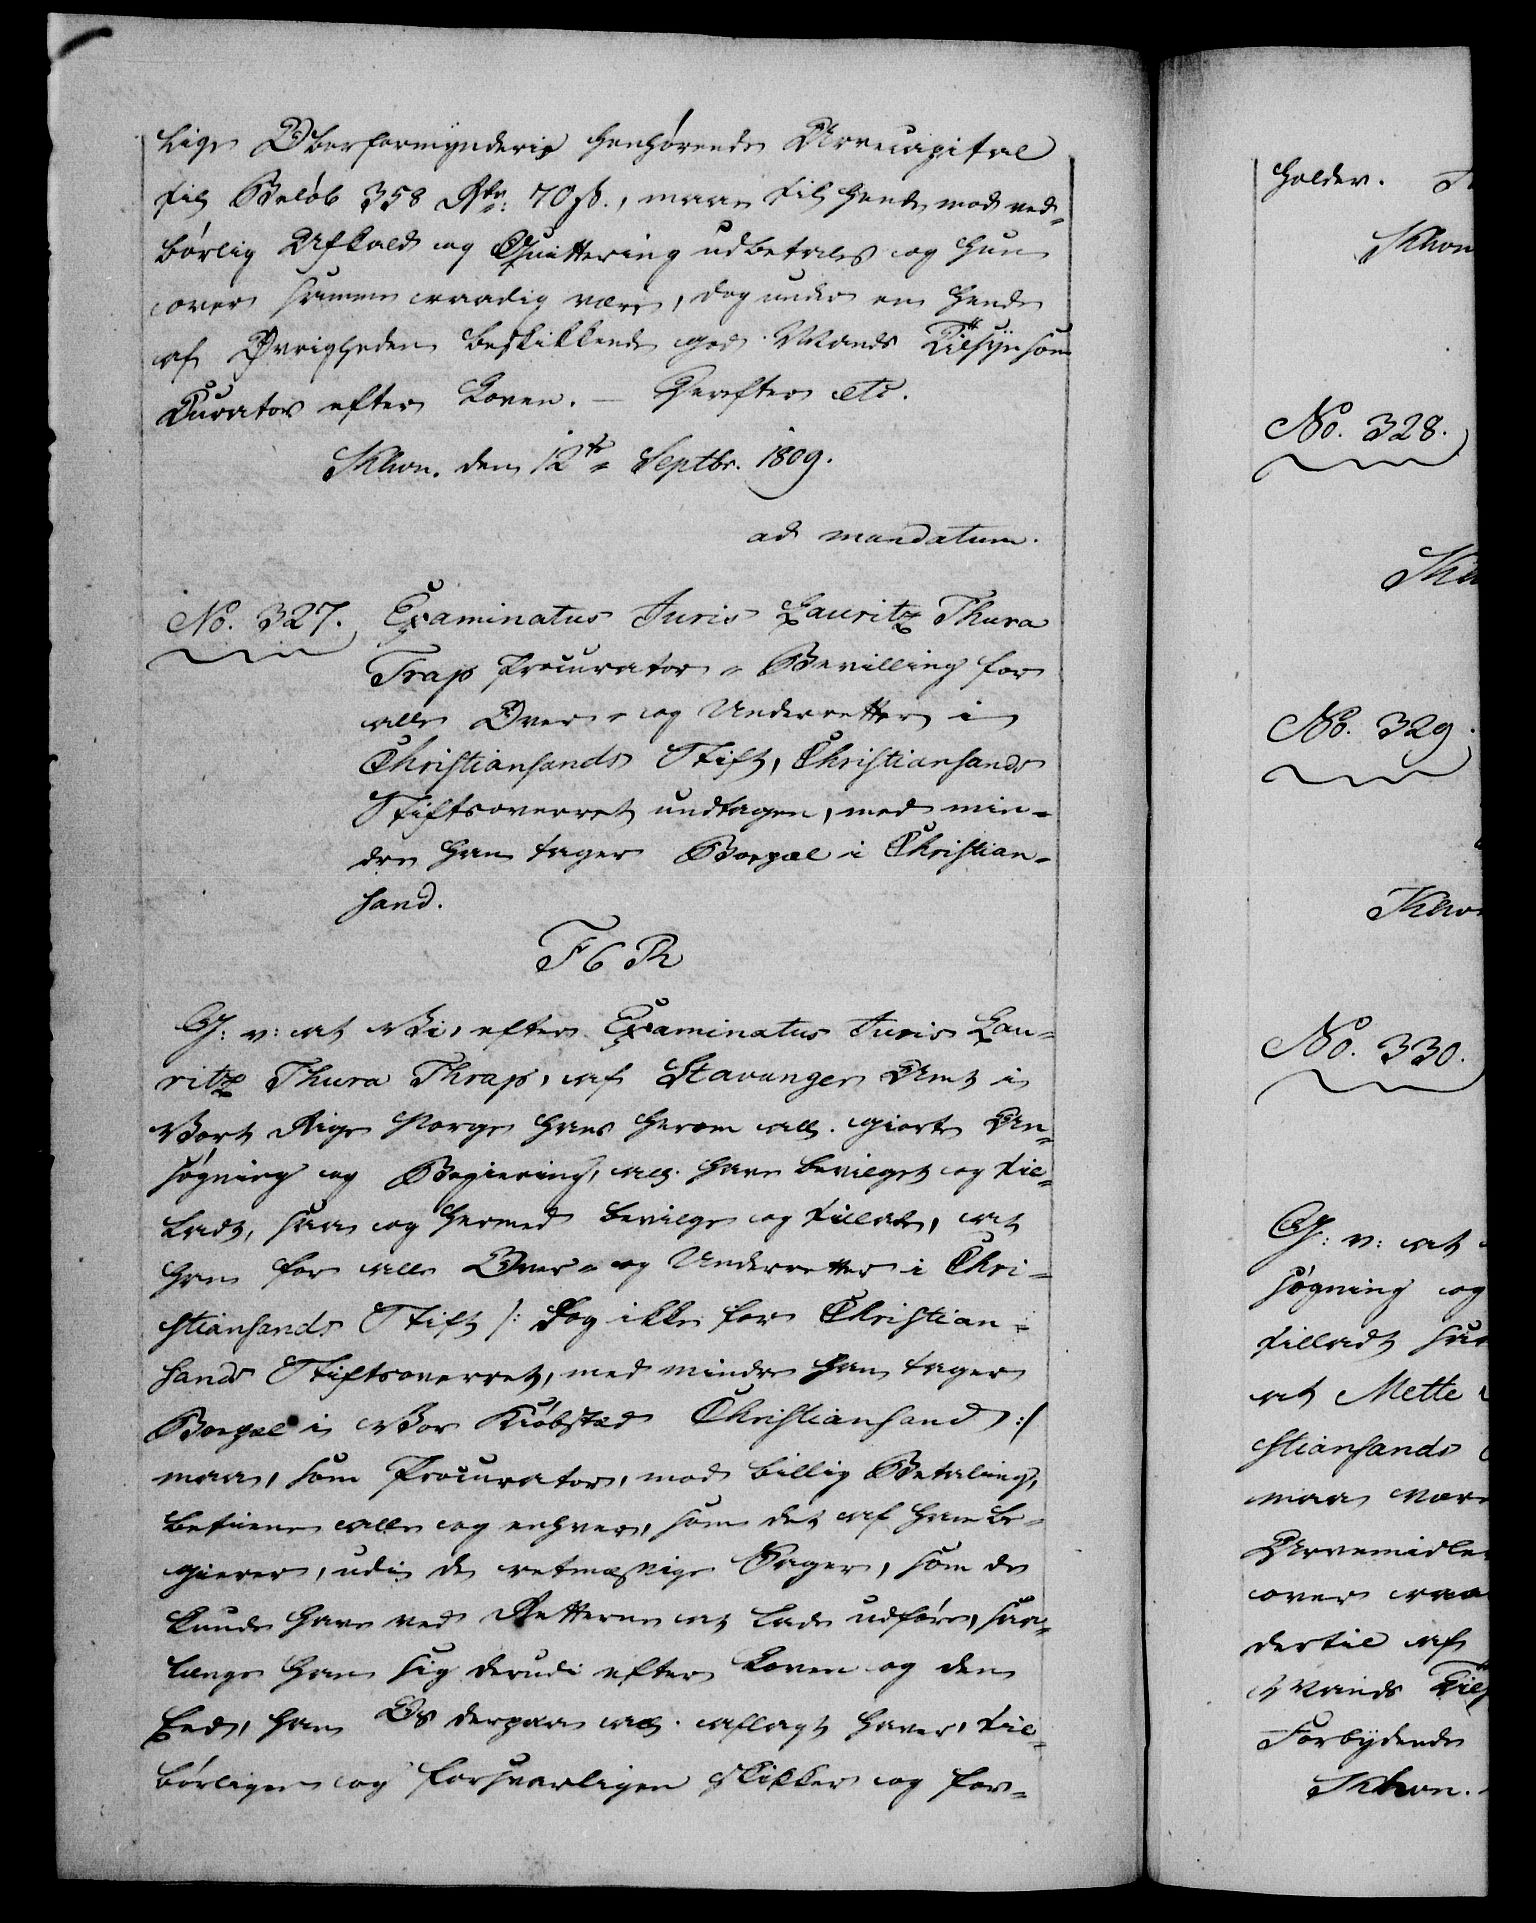 lige Oberformynderie henhørende Arvecapital
til Beløb 358 Rdr: 70 s., maae til hende mod ved-
børlig Afkald og Quittering udbetales og hun
over samme raadig være, dog under en hende
af Øvrigheden beskikkende god Mands Tilsyn som
Curator efter Loven. – Herefter etc.
Khvn. den 12te Septbr. 1809.
ad mandatum.
No. 327. Examinatus Juris Lauritz Thura
Trap Procurator-Bevilling for
alle Over- og Underretter i
Christiansands Stift, Christiansands
Stiftsoverret undtagen, med min-
dre han tager Boepæl i Christian-
sand.
F 6 R
G: v: at Vi, efter Examinatus Juris Lau-
ritz Thura Thrap, af Stavanger Amt i
Vort Rige Norge hans herom all. giorte An-
søgning og Begiering, all. have bevilget og til-
ladt, saa og hermed bevilge og tillade, at
han for alle Over- og Underretter i Chri-
stiansands Stift /: dog ikke for Christian-
sands Stiftsoverret, med mindre han tager
Boepæl i Vor Kiøbstad Christiansand :/
maae, som Procurator, mod billig Betaling,
betiene alle og enhver, som det af ham be-
gierer, udi de retmæssige Sager, som de
kunde have ved Retterne at lade udføre, saa-
længe han sig derudi efter Loven og den
Eed, han Os derpaa all. aflagt haver, til-
børligen og forsvarligen skikker og for-
holder.
Khvn
No. 328.
No. 329.
Khvn
No. 330.
G: v: at
søgning og
tilladt saa
at Mette
stiansands
maae være
Arvemidler
over raa
dertil af
Mands Tils
Forbydende
Khvn.